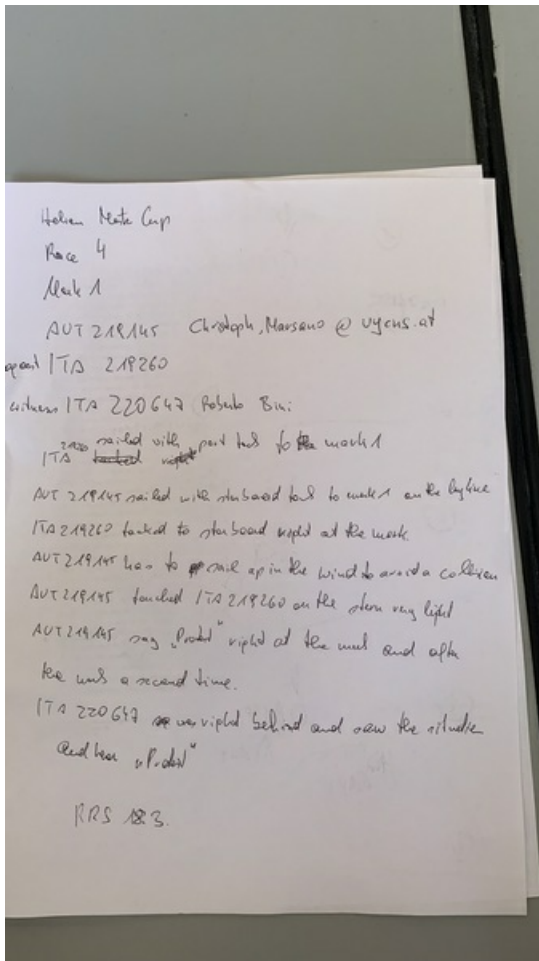 Italien Master Cup
Race 4
Mark 1
AUT 219145 Christoph, Marsano @ uycns.at
ITA 219260
witness ITA 220647 Roberto Bini
ITA sailed with port tack to mark 1
AUT 219145 sailed with starboard tack to mark 1 on the layline
ITA 219260 tacked to starboard right at the mark.
AUT 219145 has to sail up in the wind to avoid a collision
AUT 219145 touched ITA 219260 on the stern very light
AUT 219145 say „Protest“ right at the mark and after
the mark a second time.
ITA 220647 was right behind and saw the situation
and hear „Protest“
RRS 18.3.